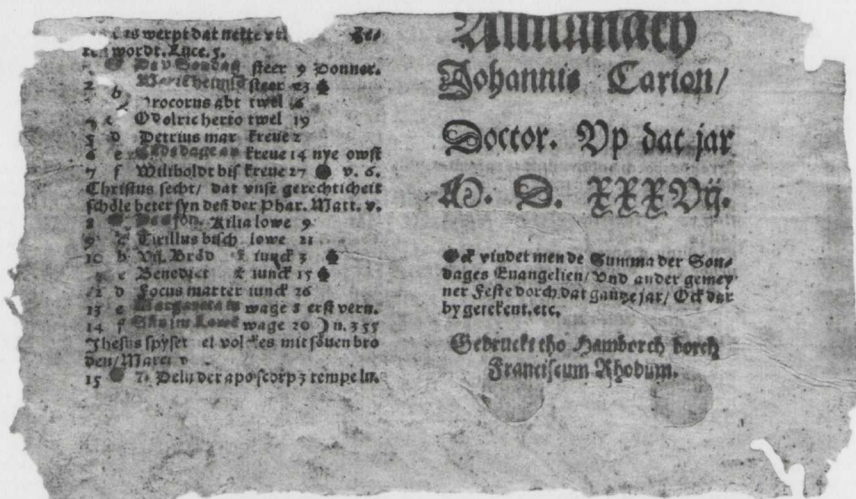 werpt dat nette
wordt. Luce. 5.
De v Sondag steer 9 Donner.
steer 23
b Procorus abt twel
c Odelric herto twel 19
d Petrius mar kreue 2
6 e kreue 14 nye owst
7 f Wiliboldt bis kreue 27 v. 6.
Christus secht/ dat vnse gerechticheit
schole beter syn den der Phar. Matt. v.
8 Kilia lowe 9
9 Cirillus bisch lowe 21
10 b Vij. Bröd iunck 3
c Benedict iunck 15
12 d Focus marter iunck 26
13 e Margareta wage 8 erst vern.
14 f wage 20 ) n. 3 55
Jhesus spyset vol kes mit söuen bro
den/ Marci
15 7. Delin der apo scorp 3 tempe lu.
Almanach
Johannis Carion/
Doctor. Vp dat jar
M. D. XXXVij.
Ock vindet men de Summa der Son-
dages Euangelien/ Vnd ander gemey
ner Feste dorch dat gantze jar/ Ock dar
by getekent. etc.
Gedruckt tho Hamborch dorch
Franciscum Rhodum.